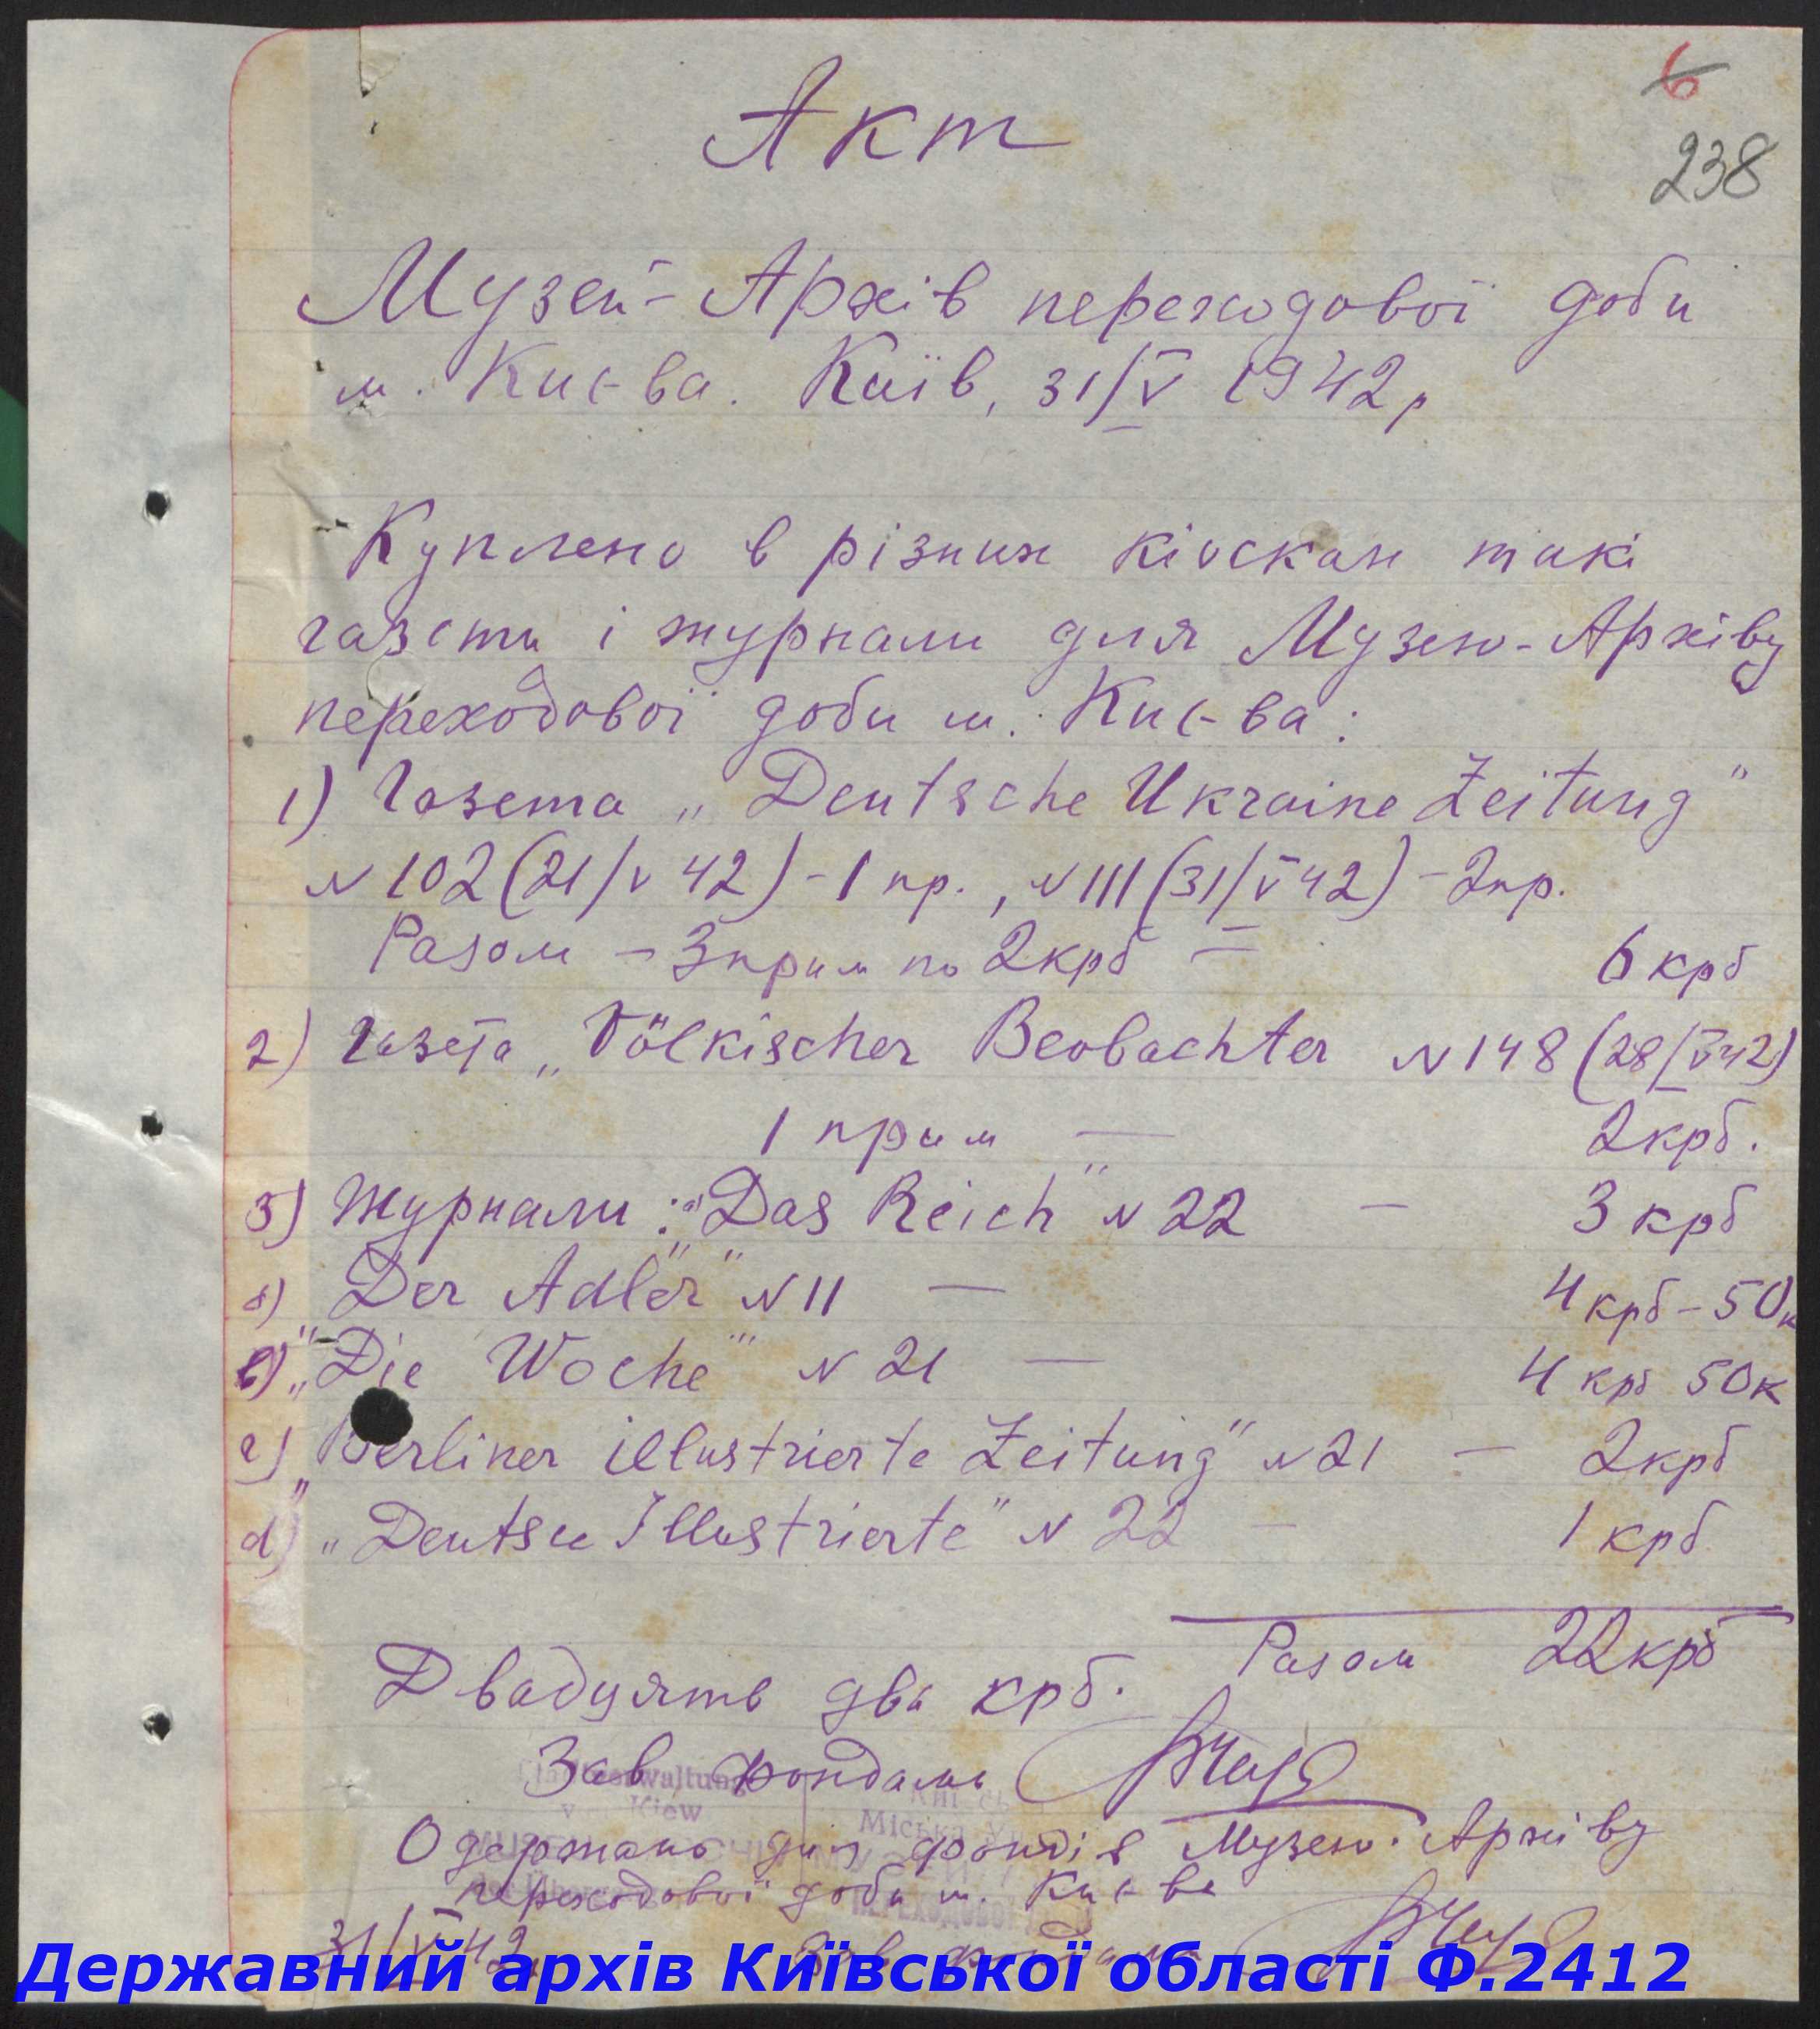 6
238
Акт
Музей-Архів переходової доби
м. Києва. Київ, 31/V 1942р
Куплено в різних кіосках такі
газети і журнали для Музею-Архіву
переходової доби м. Києва:
1) Газета „Deutsche Ukraine Zeitung"
№ 102 (21/V 42) - 1 пр., № 111 (31/V 42) - 2 пр.
Разом - 3 прим по 2 крб — 6 крб
2) Газета „Völkischer Beobachter № 148 (28/V 42)
1 прим — 2 крб.
3) Журнали: „Das Reich" № 22 — 3 крб
б) „Der Adler" № 11 — 4 крб - 50к
в) „Die Woche" № 21 — 4 крб 50к
г) „Berliner illustrierte Zeitung" № 21 — 2 крб
д) „Deutsce Illustrierte" № 22 — 1 крб
Разом 22 крб
Двадцять два крб.
Зав фондами
Одержано для фондів Музею-Архіву
переходової доби м. Києва
31/V 42 Зав фондами
Державний архів Київської області Ф.2412